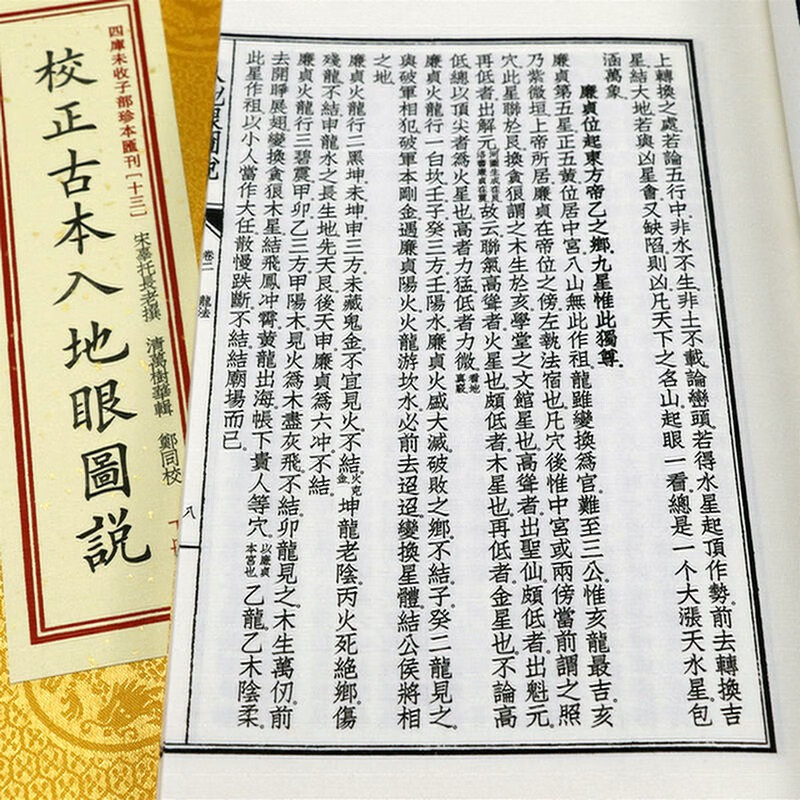 四庫未收子部珍本匯刊〔十三〕
校正古本入地眼圖説
宋辜托長老撰　清萬樹華輯　鄭同校
上轉換之處。若論五行中。非水不生。非土不載。論巒頭。若得水星起頂作勢。前去轉換吉
星結大地。若與凶星會。又缺陷則凶。凡天下之名山。起眼一看。總是一个大漲天水星。包
涵萬象。
廉貞位起東方帝乙之鄉。九星惟此獨尊。
廉貞第五星。正五黃位居中宮。八山無此作祖。龍雖變換爲官。難至三公。惟亥龍最吉。亥
乃紫微垣。上帝所居。廉貞在帝位之傍。左執法宿也。凡穴後惟中宮或兩傍當前。謂之照
穴。此星聯於艮。換貪狼。謂之木生於亥。學堂之文館星也。高聳者出聖仙。頗低者出魁元。
再低者出解元。故云聯氣高聳者火星也。頗低者木星也。再低者金星也。不論高
低。總以頂尖者爲火星也。高者力猛。低者力微。看地真竅
廉貞火龍行一白坎。壬子癸三方。壬陽水。廉貞火。威大滅。破敗之鄉不結。子癸二龍見之。
與破軍相犯。破軍本剛金。遇廉貞陽火。火龍游坎水。必前去迢迢變換星體。結公侯將相
之地。
廉貞火龍行二黑坤。未坤申三方。未藏鬼金。不宜見火。不結。火克金 坤龍老陰。丙火死絕鄉。傷
殘龍不結。申龍水之長生地。先天艮。後天申。廉貞爲六冲。不結。
廉貞火龍行三碧震。甲卯乙三方。甲陽木見火。爲木盡灰飛。不結。卯龍見之。木生萬仞。前
去開睜展翅。變換貪狼木星。結飛鳳冲霄。黃龍出海。帳下貴人等穴。以廉貞本宮也 乙龍乙木陰柔。
此星作祖。以小人當作大任。散慢跌斷。不結。結廟場而已。
卷二　龍法
八